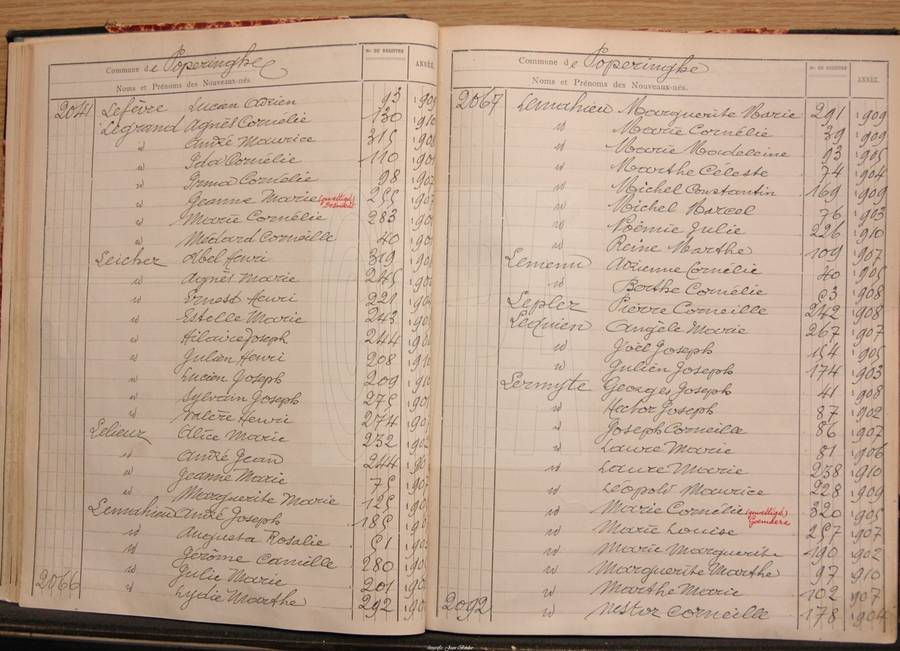 Commune de Poperinghe
Nos DU REGISTRE
ANNÉE
Noms et Prénoms des Nouveaux-nés.
2041 Lefèvre Lucien Adrien 93 190
Legrand Agnès Cornélie 130 191
id André Maurice 315 190
id Ida Cornélie 110 190
id Irma Cornélie 98 190
id Jeanne Marie 255 190
id Marie Cornélie 283 190
id Médard Corneille 40 190
Leicher Abel Henri 319 190
id Agnès Marie 245 190
id Ernest Henri 221 190
id Estelle Marie 243 190
id Hilaire Joseph 244 190
id Julien Henri 208 191
id Lucien Joseph 209 191
id Sylvain Joseph 275 190
id Valère Henri 274 190
Lelieur Alice Marie 232 190
id André Jean 244 190
id Jeanne Marie 75 190
id Marguerite Marie 125 190
Lemahieu André Joseph 185 190
id Augusta Rosalie 51 190
id Jérôme Camille 280 190
id Julie Marie 201 190
2066 id Lydie Marthe 292 190
Commune de Poperinghe
Nos DU REGISTRE
ANNÉE.
Noms et Prénoms des Nouveaux-nés.
2067 Lemahieu Marguerite Marie 291 1909
id Marie Cornélie 39 1909
id Marie Madeleine 93 1905
id Marthe Céleste 74 1904
id Michel Constantin 169 1909
id Michel Marcel 76 1903
id Noëmie Julie 226 1910
id Reine Marthe 109 1907
Lemenu Adrienne Cornélie 40 1905
id Berthe Cornélie 53 1908
Leplez Pierre Corneille 242 1908
Lequien Angèle Marie 267 1907
id Joël Joseph 154 1905
id Julien Joseph 174 1903
Lermyte Georges Joseph 41 1908
id Hector Joseph 87 1902
id Joseph Corneille 86 1907
id Laure Marie 81 1906
id Laure Marie 238 1910
id Léopold Maurice 228 1909
id Marie Cornélie 320 1905
id Marie Louise 257 1907
id Marie Marguerite 190 1902
id Marguerite Marthe 97 1910
id Marthe Marie 102 1907
2092 id Nestor Corneille 178 1904